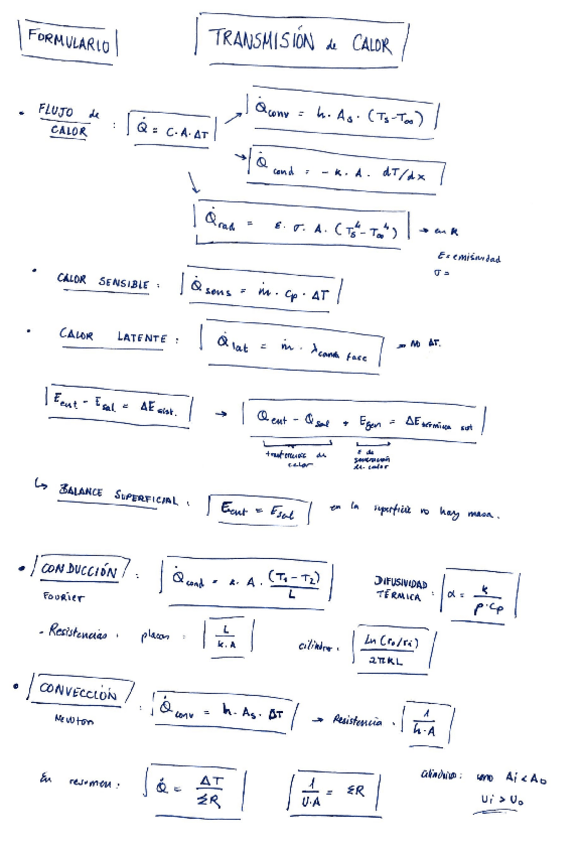 FORMULARIO
TRANSMISIÓN de CALOR
• FLUJO de CALOR : Q̇ = C·A·ΔT
Q̇conv = h·As·(Ts-T∞)
Q̇cond = -k·A·dT/dx
Q̇rad = ε·σ·A·(Ts⁴-T∞⁴) → en K
ε = emisividad
σ =
• CALOR SENSIBLE : Q̇sens = ṁ·cp·ΔT
• CALOR LATENTE : Q̇lat = ṁ·λ → NO ΔT.
Eent - Esal = ΔEsist. → Qent - Qsal + Egen = ΔEtérmica sist
transferencia de calor
E de generación de calor
↳ BALANCE SUPERFICIAL : Eent = Esal en la superficie no hay masa.
• CONDUCCIÓN : Q̇cond = k·A·(T1-T2)/L
FOURIER
DIFUSIVIDAD TÉRMICA : α = k/ρ·cp
- Resistencias : placas : L/k·A cilindro : Ln(ro/ri)/2πKL
• CONVECCIÓN : Q̇conv = h·As·ΔT → Resistencia : 1/h·A
Newton
En resumen : Q̇ = ΔT/ΣR 1/U·A = ΣR
cilindrico : Ai < Ao
Ui > Uo